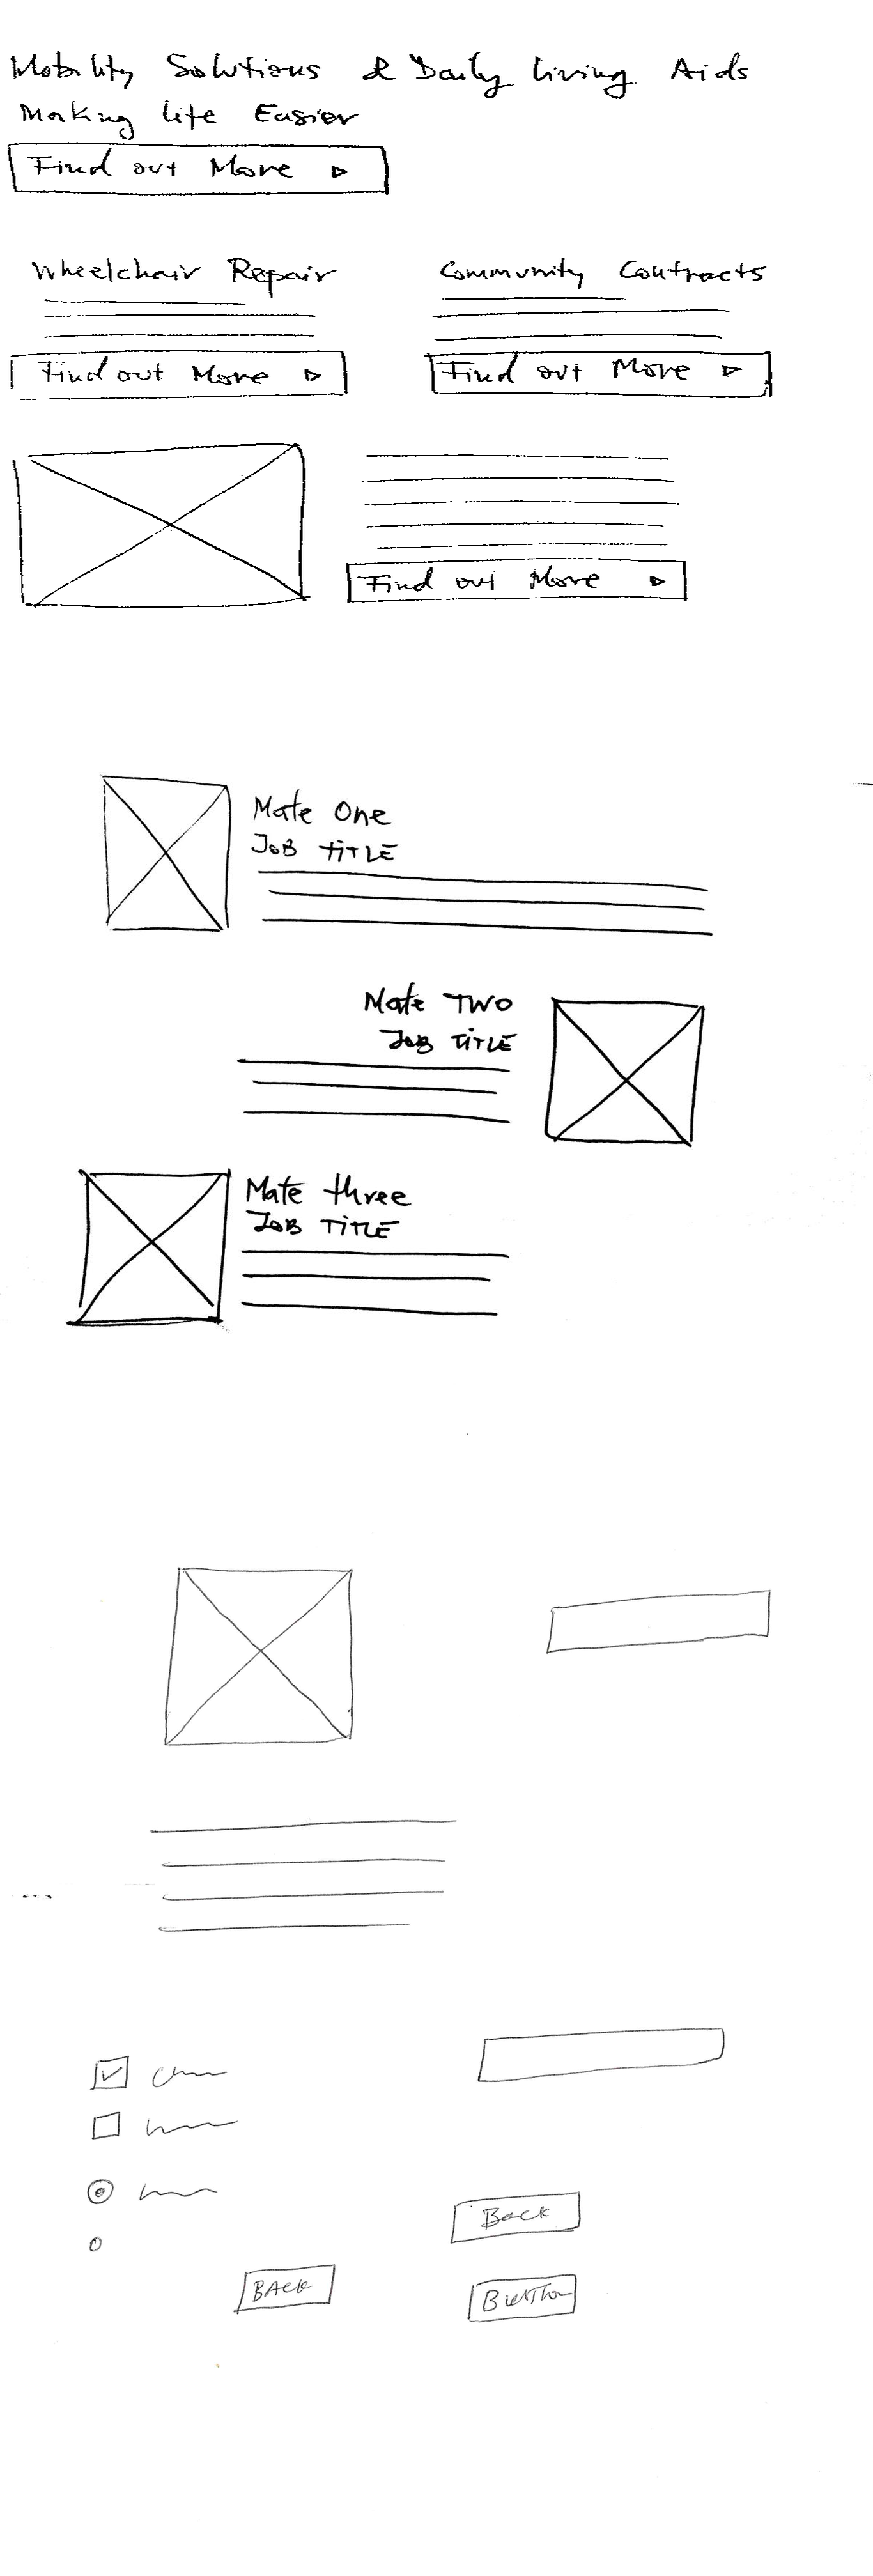 Mobility Solutions & Daily Living Aids
Making Life Easier
Find out More
Wheelchair Repair
Community Contracts
Find out More
Find out More
Find out More
Mate One
JOB TITLE
Mate TWO
JOB TITLE
Mate three
JOB TITLE
Back
BACK
Button